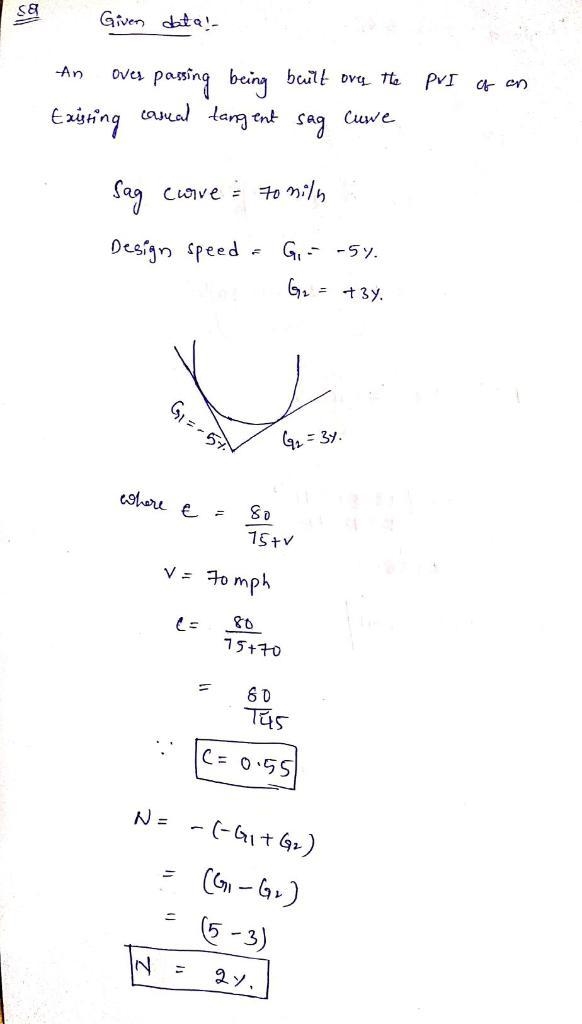 Given data!-
An over passing being built over the PVI of an
Existing casual tangent sag curve
Sag curve = 70 mi/h
Design speed = G₁ = -5%.
G₂ = +3%.
G₁ = -5%.
G₂ = 3%.
where e = 80
75+v
V = 70 mph
e = 80
75+70
= 80
145
∵ C = 0.55
N = - (-G₁ + G₂)
= (G₁ - G₂)
= (5 - 3)
N = 2%.